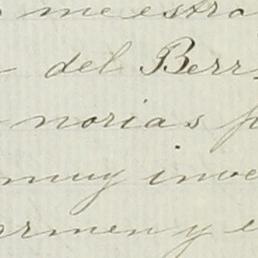 me estra
del Berr
norias f
muy inve
rmen y e